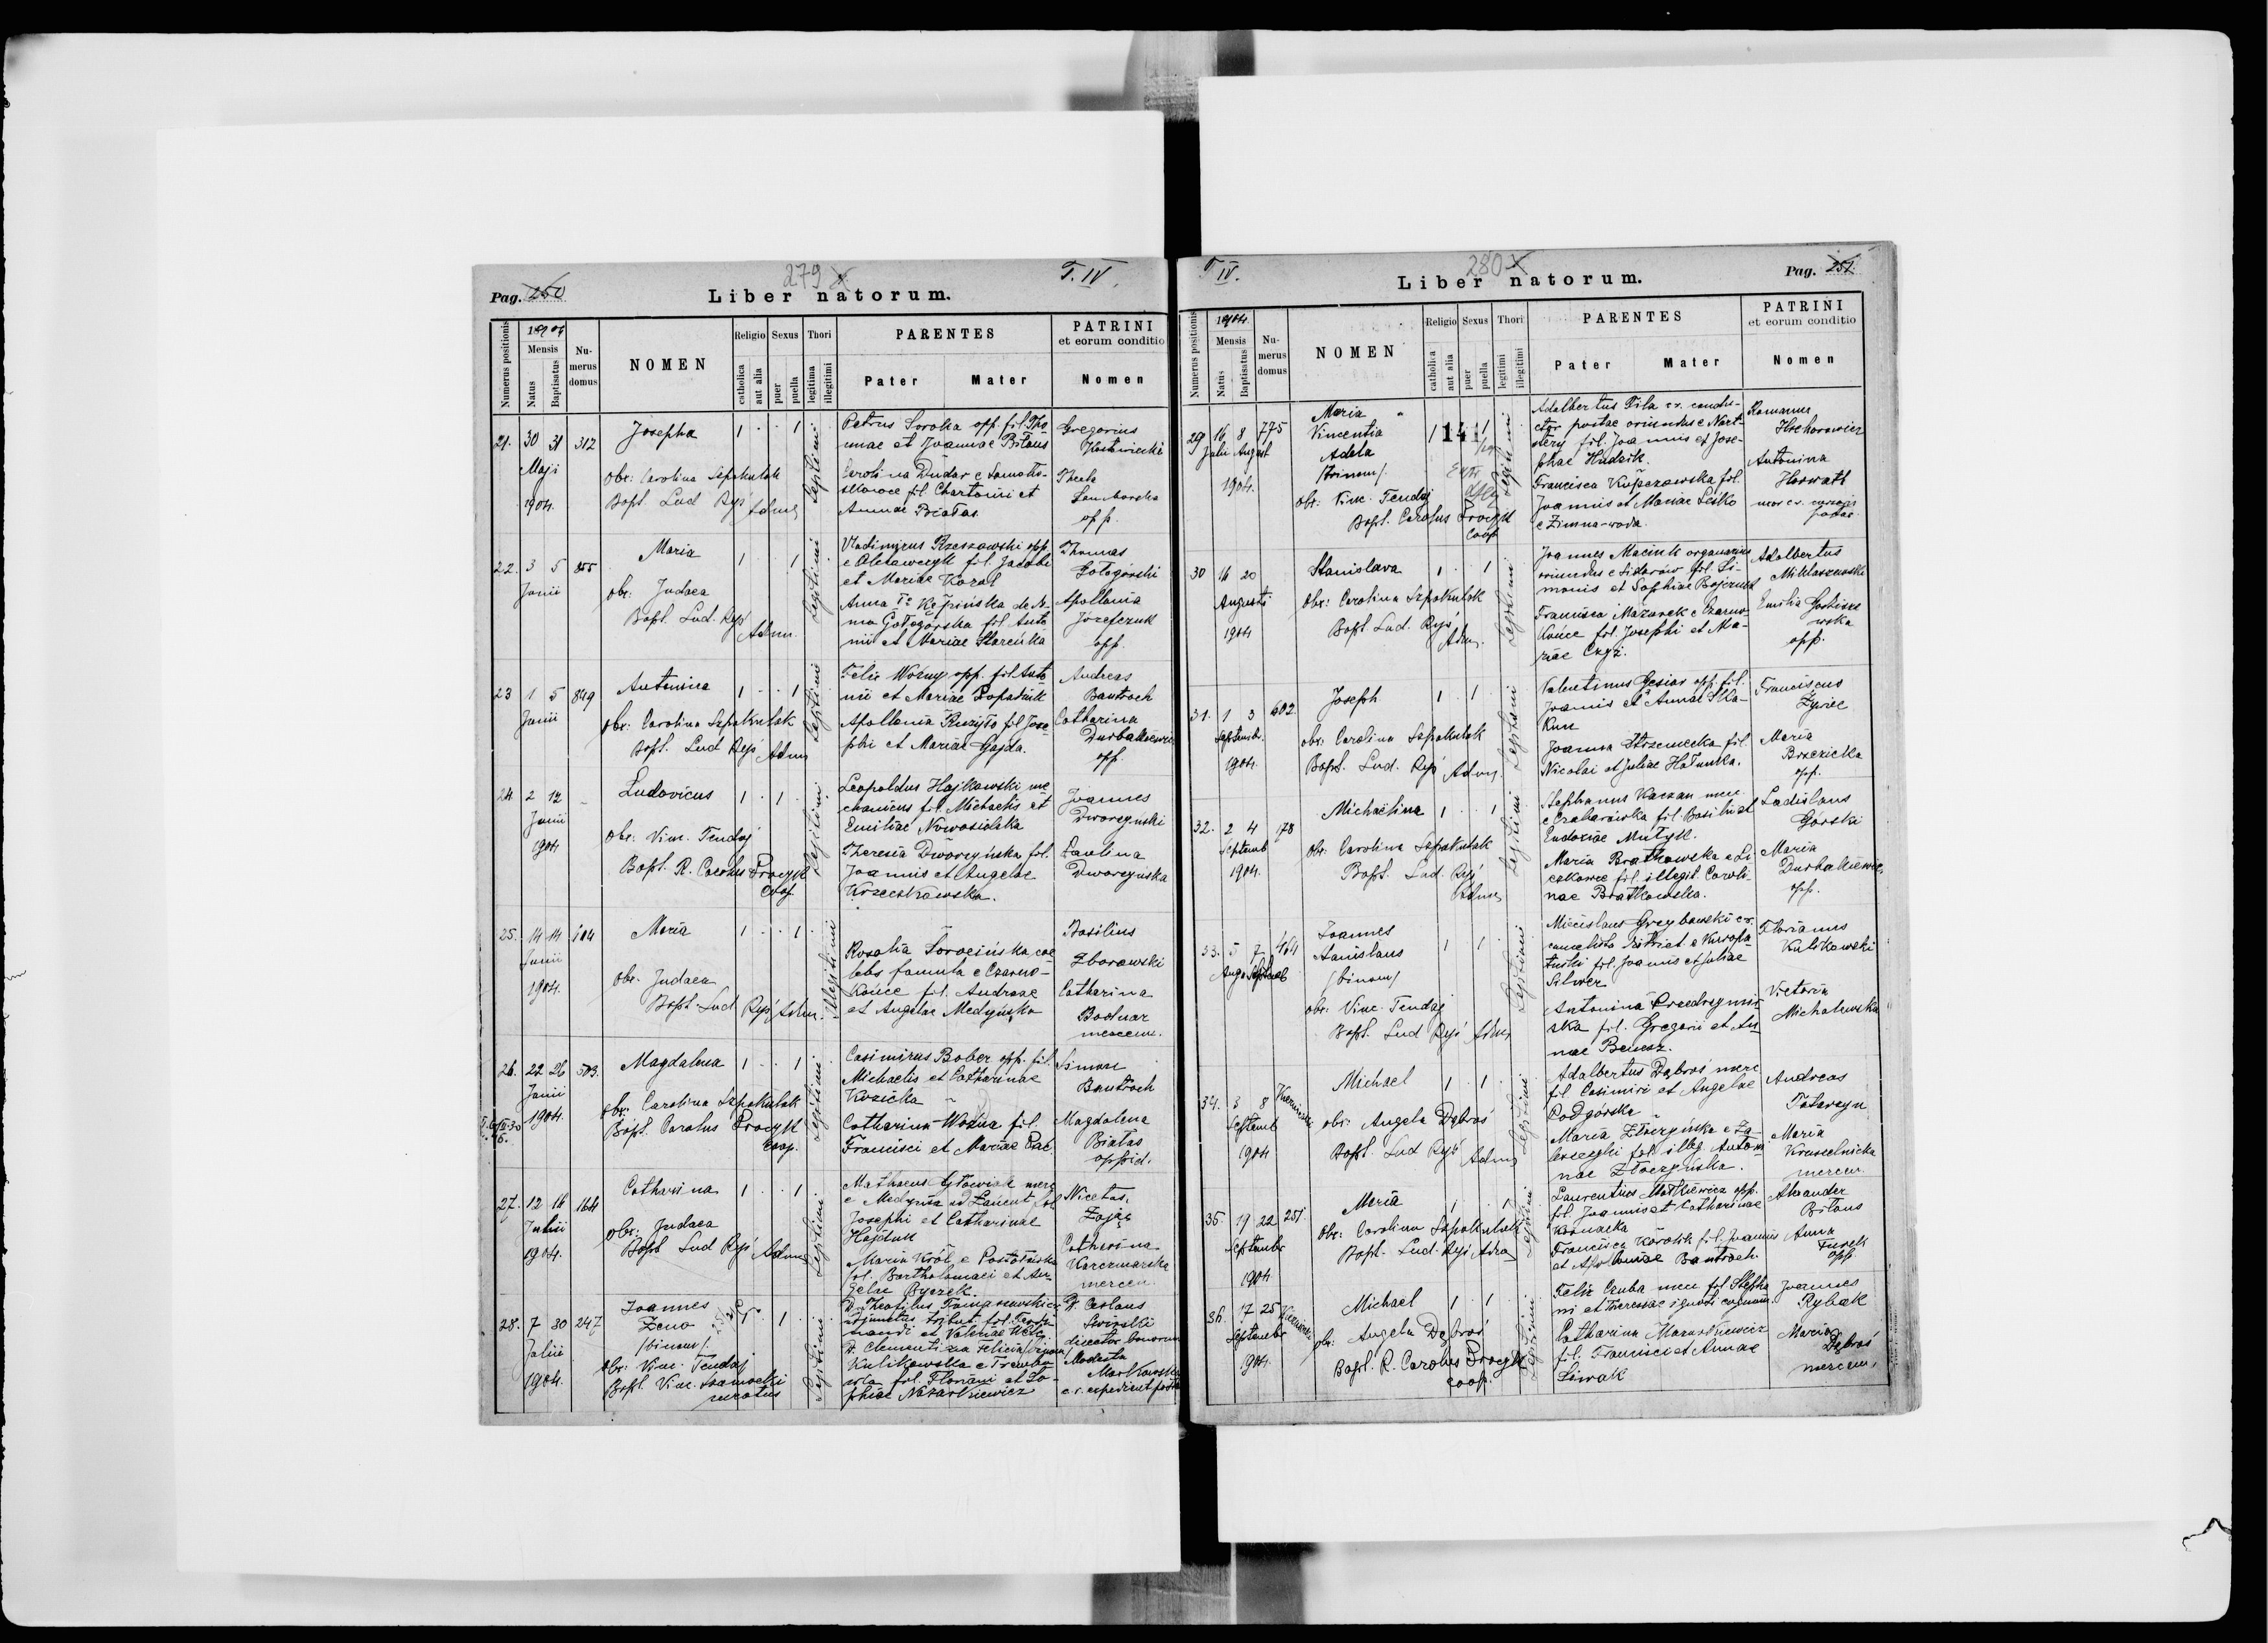 279 X
T. IV.
Pag. 250
Liber natorum.
Numerus positionis
1904
Mensis
Natus
Baptisatus
Numerus domus
NOMEN
Religio
catholica
aut alia
Sexus
puer
puella
Thori
legitima
illegitimi
PARENTES
Pater Mater
PATRINI
et eorum conditio
Nomen
21. 30 31 312
Maji
1904.
Josepha 1 1
obs: Carolina Szpakulak
Bapt. Lud Ryś Adm.
Legitimi
Petrus Soroka opp. fil. Tho
mae et Joannae Biłous
Carolina Dudar
Annae Białas.
Gregorius
Thecla
Samborska
opp.
22. 3 5 855
Junii
Maria 1 1
obs: Judaea
Bapt. Lud. Ryś Adm.
Legitimi
Vladimirus Rzeszowski opp.
fil. Jacobi
et Mariae Kozak
Anna Kępińska de
Gołogórska fil. Anto
nii et Mariae
Thomas
Gołogórski
Apollonia
Józefczuk
opp.
23 1 5 849
Junii
Antonina 1 1
obs: Carolina Szpakulak
Bapt. Lud Ryś Adm
Legitimi
Felix Woźny opp. fil. Anto
nii et Mariae Popadiuk
Apollonia fil Jose
phi et Mariae Gajda.
Andreas
Bantroch
Catharina
opp.
24. 2 12 -
Junii
1904
Ludovicus 1 1
obs: Vinc. Tendaj
Bapt. R. Carolus Procyk
Coop.
Legitimi
Leopoldus Hajkowski me
chanicus fil. Michaelis et
Emiliae Nowosielska
Theresia Dworzyńska fil.
Joannis et Angelae
Joannes
Dworzyński
Paulina
Dworzyńska
25. 14 14
Junii
1904.
Maria 1 1
obs. Judaea
Bapt. Lud Ryś Adm.
Illegitimi
Rosalia cae
lebs famula e Czarno-
końce fil. Andreae
et Angelae Medyńska
Basilius
Zborowski
Catharina
Bodnar
mercen.
26. 22 26 503.
Junii
1904.
Magdalena 1 1
obs: Carolina Szpakulak
Bapt. Carolus Procyk
Coop.
Legitimi
Casimirus Bober opp. fil.
Michaelis et Catharinae
Kozicka
Catharina Woźna fil.
Francisci et Mariae
Simon
Bantroch
Magdalena
Białas
oppid.
27. 12 16 164
Julii
1904.
Catharina 1 1
obs: Judaea
Bapt Lud Ryś Adm
Legitimi
Mathaeus merc
e Medynia ad Łańcut fil
Josephi et Catharinae
Hajduk
Maria Król e
fil. Bartholomaei et An-
gelae Byczek.
Nicetas
Zając
Catharina
Karczmarska
mercen.
28. 7 30 247
Julii
1904.
Joannes
Zeno
/binom/.
obs. Vinc. Tendaj
Bapt. Vinc.
curatus
Legitimi
D. Theofilus Tomaszewski
adjunctus tribut. fil. Ferdi-
nandi et Valeriae
D. Clementina Felicia /binom/
Kulikowska e Trembo
wla fil. Floriani et So-
phiae Nazarkiewicz
D. Ceslaus
Swirski
director bonorum
Modesta
Markowska
c.r. expedient postae
T IV.
280 X
Pag. 251
Liber natorum.
Numerus positionis
1904.
Mensis
Natus
Baptisatus
Numerus domus
NOMEN
Religio
catholica
aut alia
Sexus
puer
puella
Thori
legitimi
illegitimi
PARENTES
Pater Mater
PATRINI
et eorum conditio
Nomen
29 16 8 775
Julii August
1904.
Maria
Vincentia
Adela
/trinom/.
1 141 1
obs: Vinc. Tendaj
Bapt. Carolus Procyk
Coop
Legitimi
Adalbertus Pila c.r. condu-
ctor postae oriundus e
fil. Joannis et Jose-
phae Hudzik.
Francisca Kupczowska fil.
Joannis et Mariae Lesko
e Zimna-woda.
Romanus
Hrehorowicz
Antonina
Horwath
30 16 20
Augusti
1904
Stanislava 1 1
obs: Carolina Szpakulak
Bapt. Lud. Ryś
Adm.
Legitimi
Joannes Maciuk organarius
oriundus e Sidorów fil. Si-
monis et Sophiae
Francisca Mazurek e Czarno-
końce fil. Josephi et Ma-
riae
Adalbertus
Mikłaszewski
Emilia
opp.
31. 1 3 602.
Septembr.
1904.
Joseph 1 1
obs: Carolina Szpakulak
Bapt. Lud. Ryś Adm.
Legitimi
Valentinus Gęsior opp. fil.
Joannis et Annae Ska-
kun
Joanna Strzemecka fil.
Nicolai et Juliae Hałunka.
Franciscus
Żywiec
Maria
Brzezicka
opp.
32. 2 4 178
Septemb
1904.
Michaelina 1 1
obs: Carolina Szpakulak
Bapt. Lud. Ryś
Adm
Legitimi
Stephanus Kaczan merc.
fil. Basilii et
Eudoxiae
Maria Bratkowska e Li-
czkowce fil. illegit. Caroli-
nae Bratkowska.
Ladislaus
Górski
Maria
opp.
33. 5 7 464
Joannes
Stanislaus
/binom/
1 1
obs: Vinc. Tendaj
Bapt. Lud Ryś Adm
Legitimi
Miecislaus Grzybowski c.r.
fil. Joannis et Juliae
Silwer
Antonina
ska fil. Gregorii et An-
nae
Florianus
Kulikowski
Victoria
Michalewska
34. 3 8
Septemb
1904
Michael 1 1
obs: Angela Dąbroś
Bapt Lud Ryś Adm
Legitimi
Adalbertus Dąbroś merc
fil. Casimiri et Angelae
Podgórska
Maria Złoczyńska e Za-
fil. illeg. Antoni-
nae Złoczyńska.
Andreas
Tatarczyn
Maria
Krusselnicka
mercen.
35. 19 22 251
Septembr
1904
Maria 1 1
obs: Carolina Szpakulak
Bapt. Lud. Ryś Adm
Legitimi
Laurentius Matkiewicz opp.
fil. Joannis et Catharinae
Kornacka
Francisca Karolik fil. Joannis
et Apoloniae Bantroch
Alexander
Biłous
Anna
Turek
opp.
36. 17 25
Septembr
1904.
Michael 1 1
obs: Angela Dąbroś
Bapt. R. Carolus Procyk
Coop.
Legitimi
Felix Czuba merc fil Stepha
ni et Theresiae ignoti cognom.
Catharina Mazurkiewicz
fil. Francisci et Annae
Siwak
Joannes
Rybak
Maria
Dąbroś
mercen.